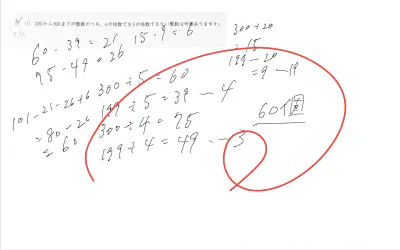 (1) 200から300までの整数のうち、4の倍数でも5の倍数でもない整数は何個ありますか。
60-39=21 15-9=6
75-49=26
300÷20
=15
199÷20
=9…19
101-21-26+6
=80-20
=60
300÷5=60
199÷5=39…4
300÷4=75
199÷4=49…3
60個